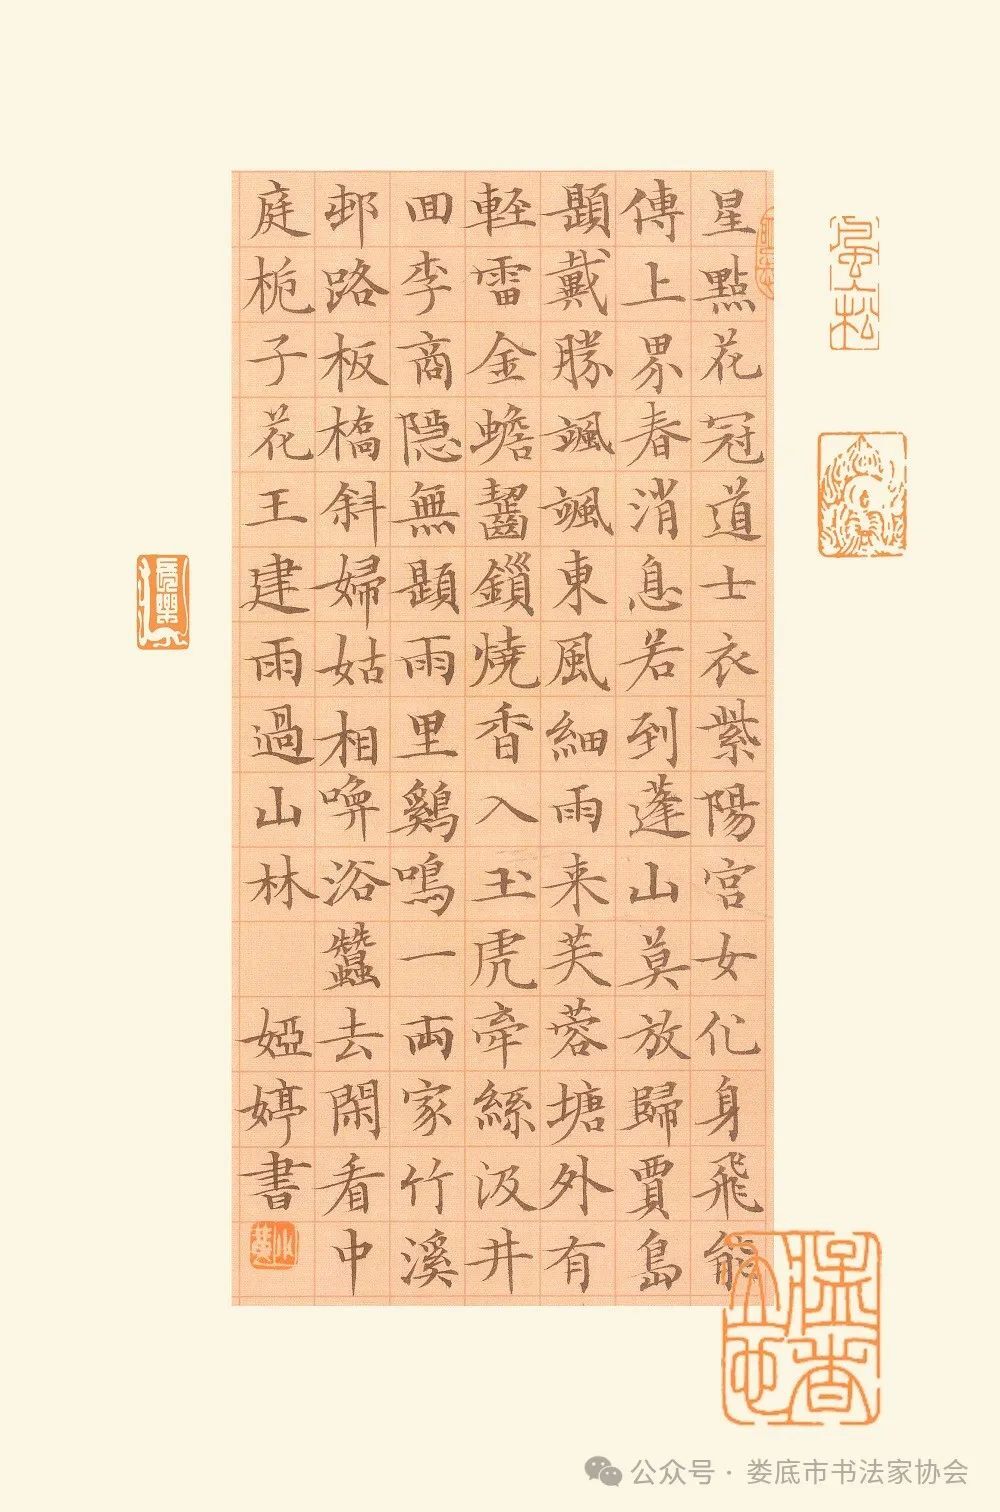 星點花冠道士衣紫陽宮女化身飛能
傳上界春消息若到蓬山莫放歸賈島
題戴勝颯颯東風細雨来芙蓉塘外有
輕雷金蟾齧鎖燒香入玉虎牽絲汲井
回李商隱無題雨里鷄鳴一兩家竹溪
邨路板橋斜婦姑相喚浴蠶去閑看中
庭梔子花王建雨過山林 婭婷書
公众号·娄底市书法家协会